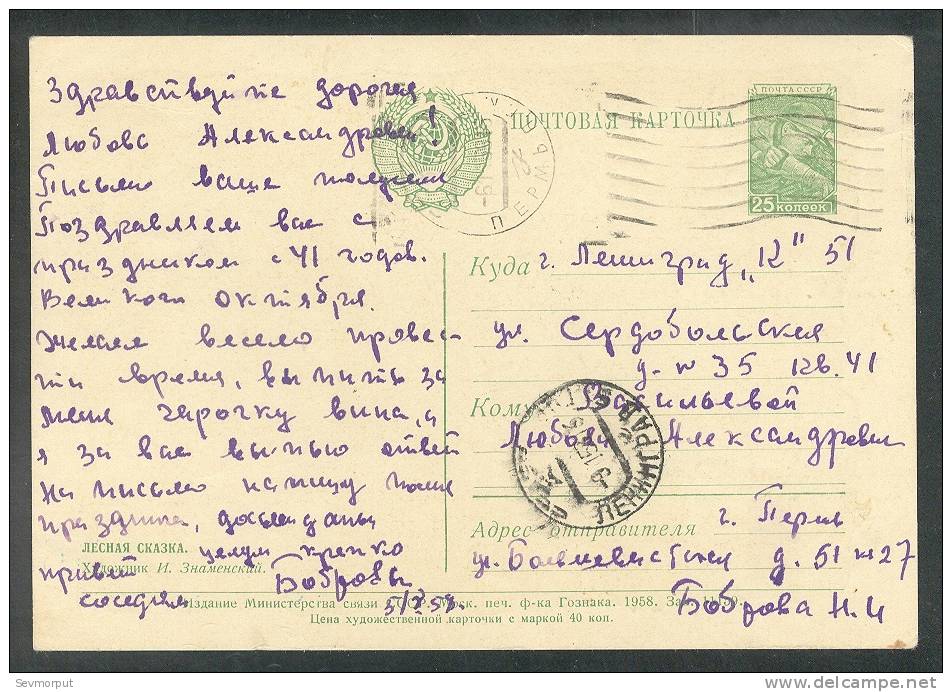 Здравствуйте дорогая
Любовь Александровн!
Письмо ваше получили
Поздравляем вас с
праздником с 41 годов.
Великого октября.
Желаем весело провес-
ти время, выпить за
меня чарочку вина, и
я за вас выпью ответ
на письмо напишу после
праздника, досвиданья
целуем крепко
привет
соседям Бобровы
5/X 58.
ЛЕСНАЯ СКАЗКА.
Художник И. Знаменский.
ПОЧТОВАЯ КАРТОЧКА
ПОЧТА СССР
25 копеек
ПЕРМЬ
Куда г. Ленинград „К" 51
ул. Сердобольская
д. № 35 кв. 41
Кому Васильевой
Любови Александровн
ЛЕНИНГРАД
Адрес отправителя г. Пермь
ул. Большевистская д. 51 № 27
Боброва Н. И
Издание Министерства связи СССР. Моск. печ. ф-ка Гознака. 1958.
Цена художественной карточки с маркой 40 коп.
Sevmorput
delcampe.net